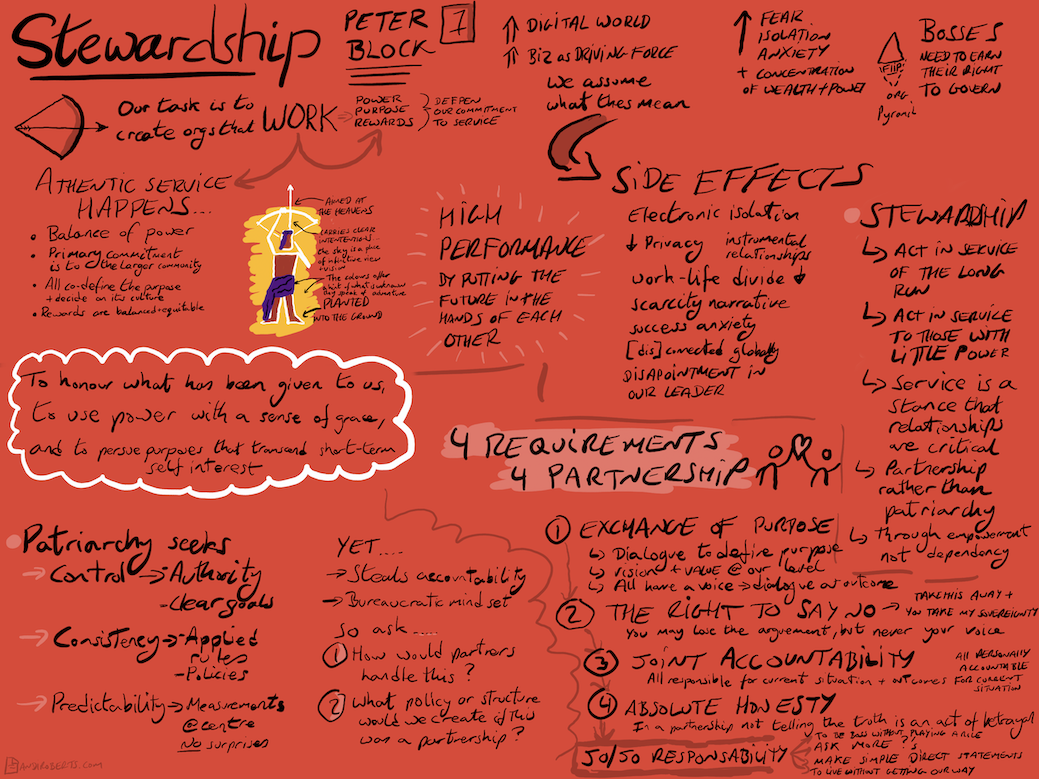 Stewardship
PETER
BLOCK
7
DIGITAL WORLD
BIZ as DRIVING FORCE
We assume
what thes mean
FEAR
ISOLATION
ANXIETY
+ CONCENTRATION
OF WEALTH + POWER
FLIP
ORG
Pyramid
BOSSES
NEED TO EARN
THEIR RIGHT
TO GOVERN
Our task is to
create orgs that
WORK
POWER
PURPOSE
REWARDS
DEEPEN
OUR COMMITMENT
TO SERVICE
ATHENTIC SERVICE
HAPPENS...
• Balance of power
• Primary commitment
is to the larger community
• All co-define the purpose
+ decide on its culture
• Rewards are balanced + equitable
AIMED AT
THE HEAVENS
CARRIES CLEAR
INTENTIONS...
the sky is a place
of infinitive view
The colours offer
PLANTED
INTO THE GROUND
HIGH
PERFORMANCE
BY PUTTING THE
FUTURE IN THE
HANDS OF EACH
OTHER
SIDE EFFECTS
Electronic isolation
↓ Privacy
instrumental
relationships
work-life divide ↓
scarcity narrative
success anxiety
[dis] connected globally
DISAPOINTMENT IN
OUR LEADER
STEWARDSHIP
ACT IN SERVICE
OF THE LONG
RUN
ACT IN SERVICE
TO THOSE WITH
LITTLE POWER
Service is a
stance that
relationships
are critical
Partnership
rather than
patriarchy
through empowerment
not dependency
To honour what has been given to us,
to use power with a sense of grace,
and to persue purposes that transend short-term
self interest
4 REQUIREMENTS
4 PARTNERSHIP
Patriarchy seeks
Control → Authority
- clear goals
Consistency → Applied
rules
- Policies
Predictability → Measurements
@ centre
No surprises
YET....
→ Steals accountability
→ Bureaucratic mind set
So ask.....
1 How would partners
handle this?
2 What policy or structure
would we create if this
was a partnership?
1 EXCHANGE OF PURPOSE
Dialogue to define purpose
Vision + value @ our level
All have a voice → dialogue at outcome
2 THE RIGHT TO SAY NO → TAKE THIS AWAY +
YOU TAKE MY SOVEREIGNTY
You may lose the arguement, but never your voice
3 JOINT ACCOUNTABILITY
All responsible for current situation + outcomes
ALL PERSONALLY
ACCOUNTABLE
FOR CURRENT
SITUATION
4 ABSOLUTE HONESTY
In a partnership not telling the truth is an act of betrayal
50/50 RESPONSABILITY
TO BE BOSS WITHOUT PLAYING A ROLE
ASK MORE ?'s
MAKE SIMPLE DIRECT STATEMENTS
TO LIVE WITHOUT GETTING OUR WAY